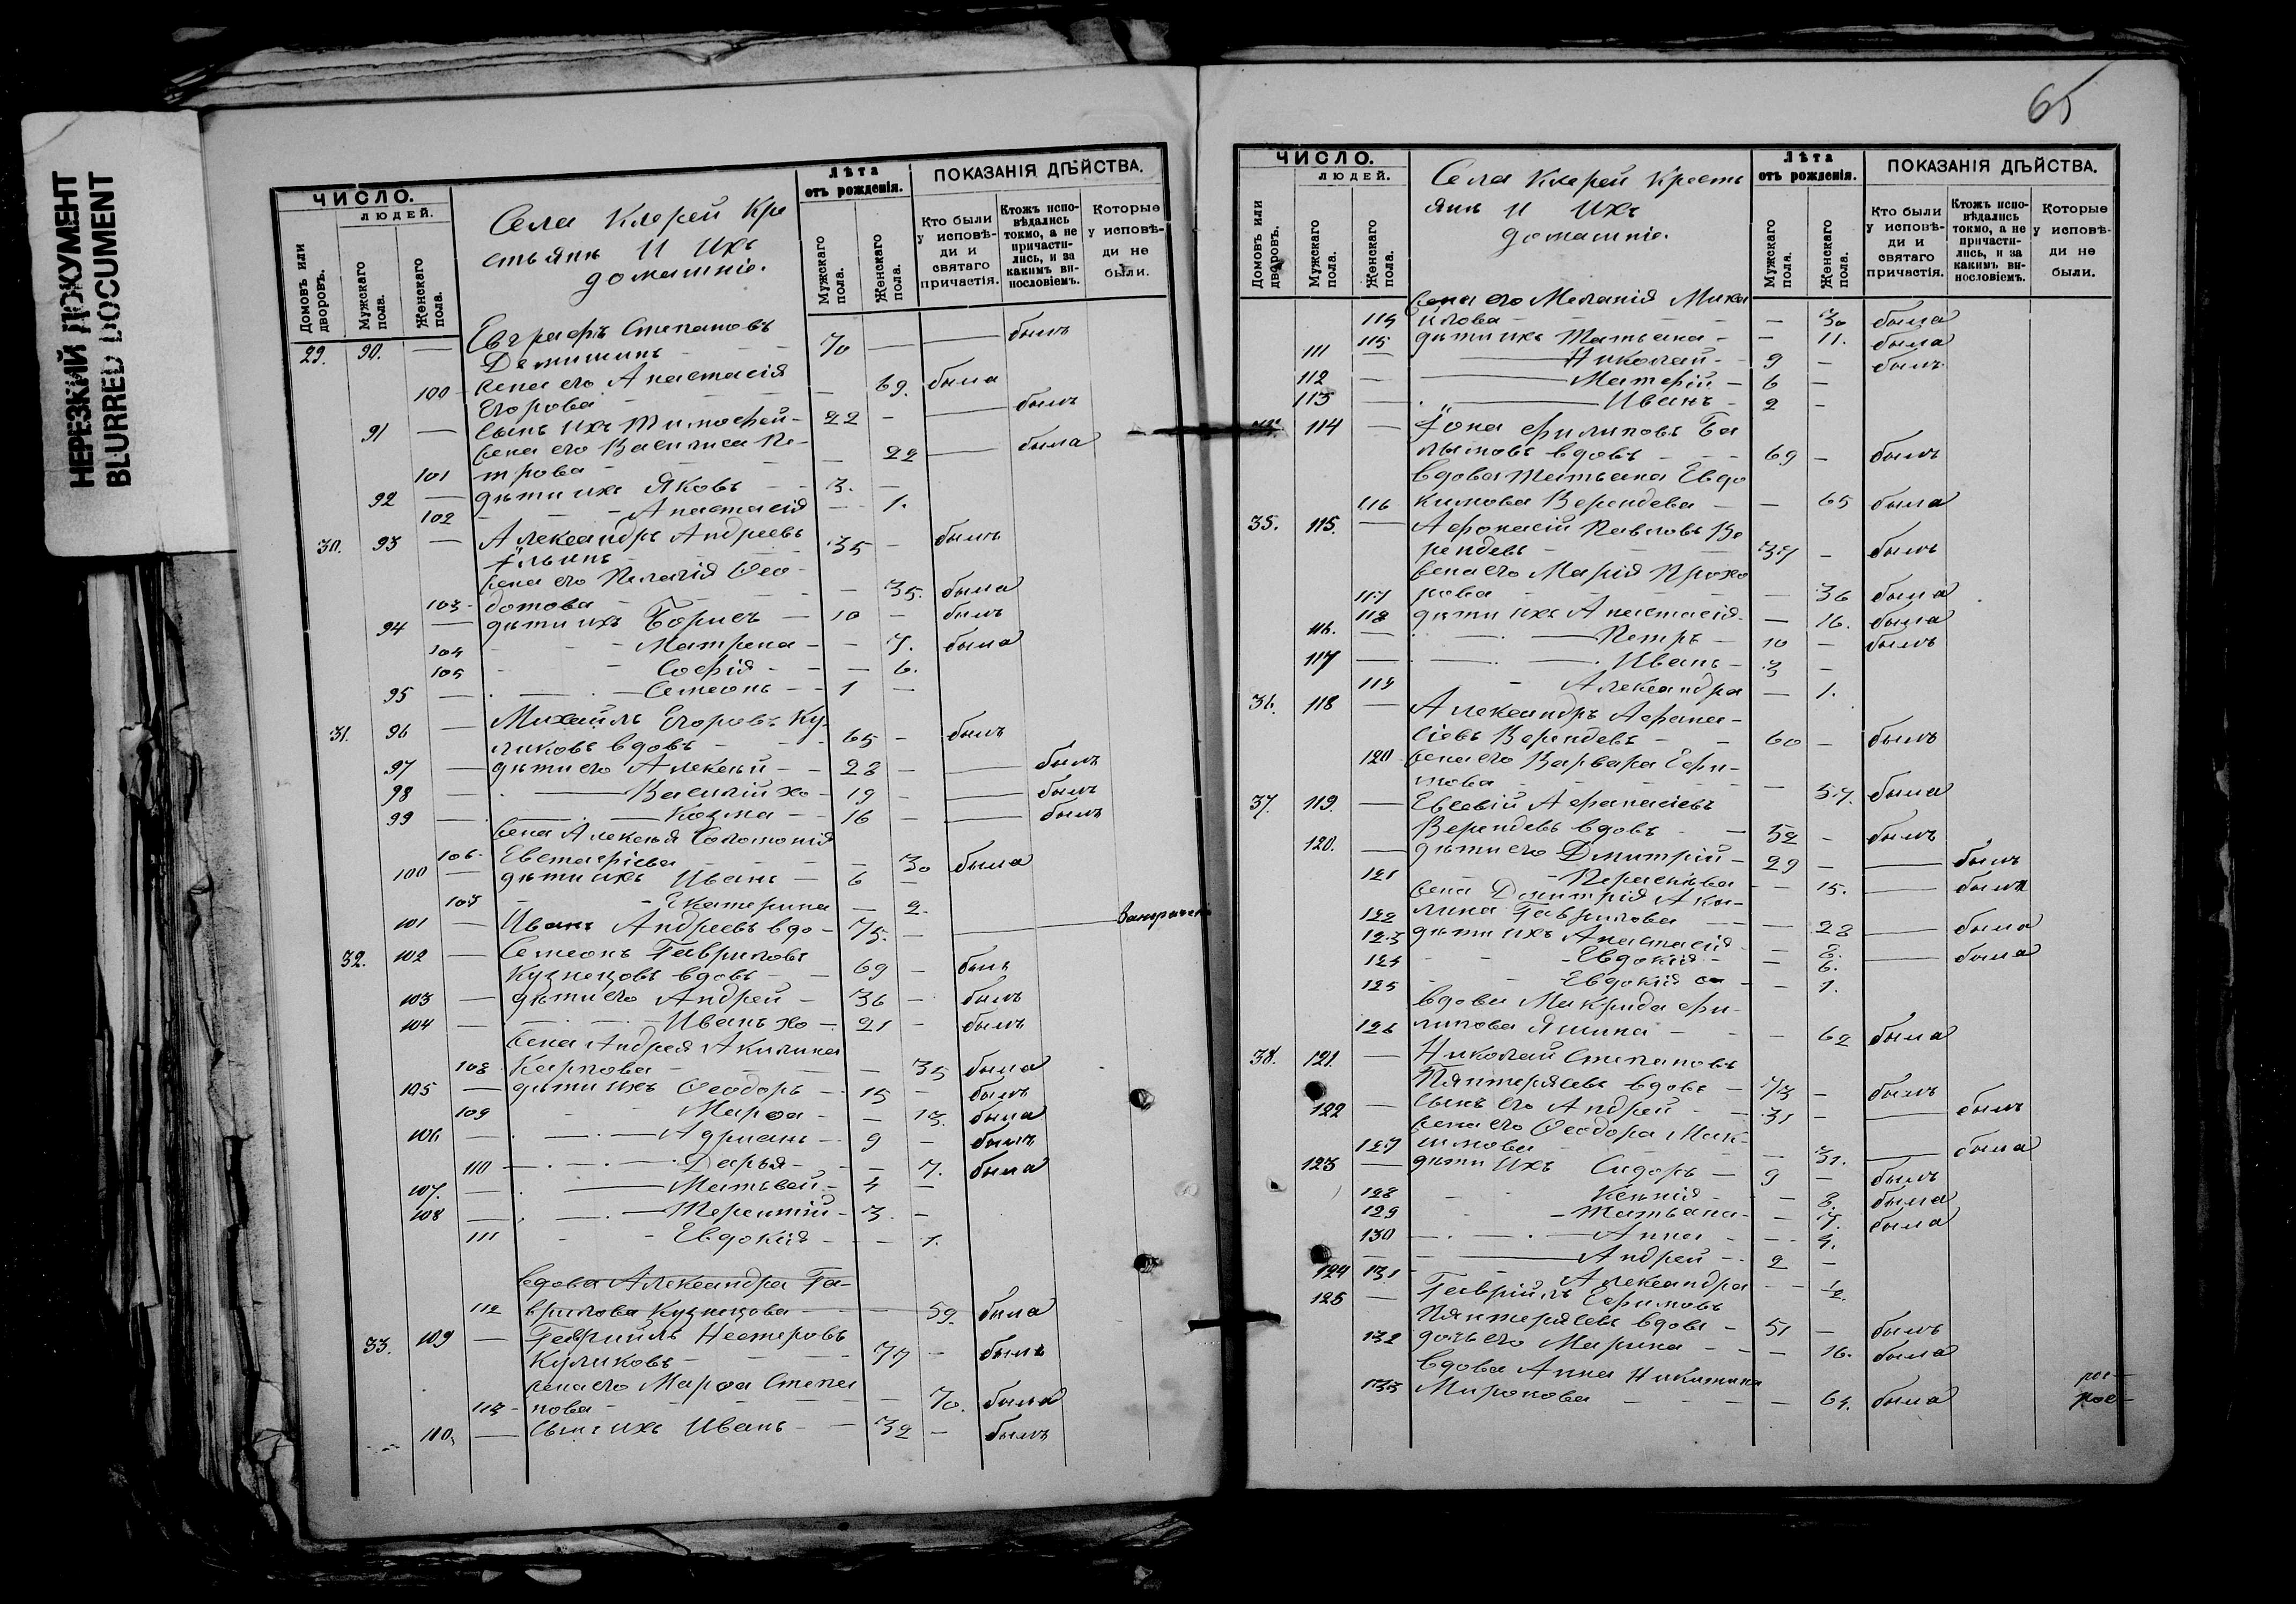 НЕРЕЗКИЙ ДОКУМЕНТ
BLURRED DOCUMENT
ЧИСЛО.
ЛЮДЕЙ.
Домовъ или дворовъ.
Мужскаго пола.
Женскаго пола.
Села Ключей Кре
стьянъ и ихъ
домашніе.
Лѣта
отъ рожденія.
Мужскаго пола.
Женскаго пола.
ПОКАЗАНІЯ ДѢЙСТВА.
Кто были у исповѣ-ди и святаго причастія.
Ктожъ испо-вѣдались токмо, а не причасти-лись, и за какимъ ви-нословіемъ.
Которые у исповѣ-ди не были.
29. 90. — Евграфъ Степановъ
Демишинъ - 70 — — былъ
100 жена его Анастасія
Егорова - — 69. была
91 — сынъ ихъ Тимофей - 22 - — былъ
жена его Василиса Пе-
101 трова - — 22 — была
92 — дѣти ихъ Яковъ - 3. —
102 - Анастасія - 1.
30. 93 — Александръ Андреевъ
Ильинъ - 35 - былъ
жена его Пелагія Ѳео-
103 - дотова - 35. была
94 — дѣти ихъ Борисъ — 10 - былъ
104 - Матрена - - 7. была
105 - Софія - - 6.
95 — Семеонъ - - 1 —
31. 96 — Михаилъ Егоровъ Ку-
ликовъ вдовъ - 65 - былъ
97 — дѣти его Алексѣй - - 28 - — былъ
98 — Василій хо - 19 - — былъ
99 — Козма - - 16 - — былъ
жена Алексѣя Соломонія
106 - Евстафіева - 30 была
100 — дѣти ихъ Иванъ - 6 —
107 - Екатерина - 2.
101 — Иванъ Андреевъ вдо - 75. -
32. 102 — Семеонъ Гавриловъ
Кузнецовъ вдовъ - 69 - былъ
103 — дѣти его Андрей - 36 - былъ
104 — Иванъ хо - 21 - былъ
жена Андрея Акилина
108 Карпова - 35 была
105 — дѣти ихъ Ѳеодоръ - 15 - былъ
109 - Марѳа - — 13. была
106 — Адріанъ - 9 - былъ
110 — Дарья - - 7. была
107. — Матвей - 4 -
108 — Терентій - 3. -
111 - Евдокія - - 1.
вдова Александра Га-
112 врилова Кузнецова - 59. была
33. 109 — Гавріилъ Нестеровъ
Куликовъ - 77 - былъ
жена его Марѳа Степа
113 - нова - 70. была
110. — сынъ ихъ Иванъ - 32 - былъ
65
ЧИСЛО.
ЛЮДЕЙ.
Домовъ или дворовъ.
Мужскаго пола.
Женскаго пола.
Села Ключей Кресть
янъ и ихъ
домашніе.
Лѣта
отъ рожденія.
Мужскаго пола.
Женскаго пола.
ПОКАЗАНІЯ ДѢЙСТВА.
Кто были у исповѣ-ди и святаго причастія.
Ктожъ испо-вѣдались токмо, а не причасти-лись, и за какимъ ви-нословіемъ.
Которые у исповѣ-ди не были.
жена его Меланія Миха
114 илова - — 30 была
115 дѣти ихъ Татьяна - - 11. была
111 — Николай - 9 - былъ
112 — - 6 —
113 — Иванъ - 2 -
114 — Іона Филиповъ Ба
вдовъ - 69 - былъ
вдова Татьяна Евдо
116 кимова Верендева - — 65 была
35. 115. — Афонасій Павловъ Ве
рендевъ - 37 - былъ
жена его Марія Прохо
117 рова - — 36 была
118 дѣти ихъ Анастасія - — 16. была
116. — Петръ - 10 — былъ
117 — Иванъ - 3 -
119 - Александра — 1.
36. 118 — Александръ Афана-
сіевъ Верендевъ - 60 - былъ
120 - жена его Варвара Ефи-
мова - — 57. была
37. 119. — Евсевій Афанасіевъ
Верендевъ вдовъ - 52 - былъ
120. — дѣти его Димитрій - 29 - — былъ
121 - - 15. — была
жена Димитрія Аки-
122 лина Гаврилова - — 28 — была
123 дѣти ихъ Анастасія - - 8. — была
124 - - Евдокія - - 6.
125 - - Евдокія - - 1.
вдова Макрида Фи-
126 липова Яшина - - 62 была
38. 121. — Николай Степановъ
вдовъ - 73 - былъ
122 — сынъ его Андрей - 31 - — былъ
жена его Ѳеодора Мак-
127 симова - — 31. — была
123 — дѣти ихъ Сидоръ - 9 - былъ
128 - Ксенія - - 8. была
129 - Татьяна - - 7. была
130 — Анна - - 4.
124 — Андрей - 2 -
131 - Александра - - ½.
125 — Гавріилъ Ефимовъ
вдовъ - 51 - былъ
132 дочь его Марина - - 16. была
вдова Анна Никитина
133 Миронова - - 64. была